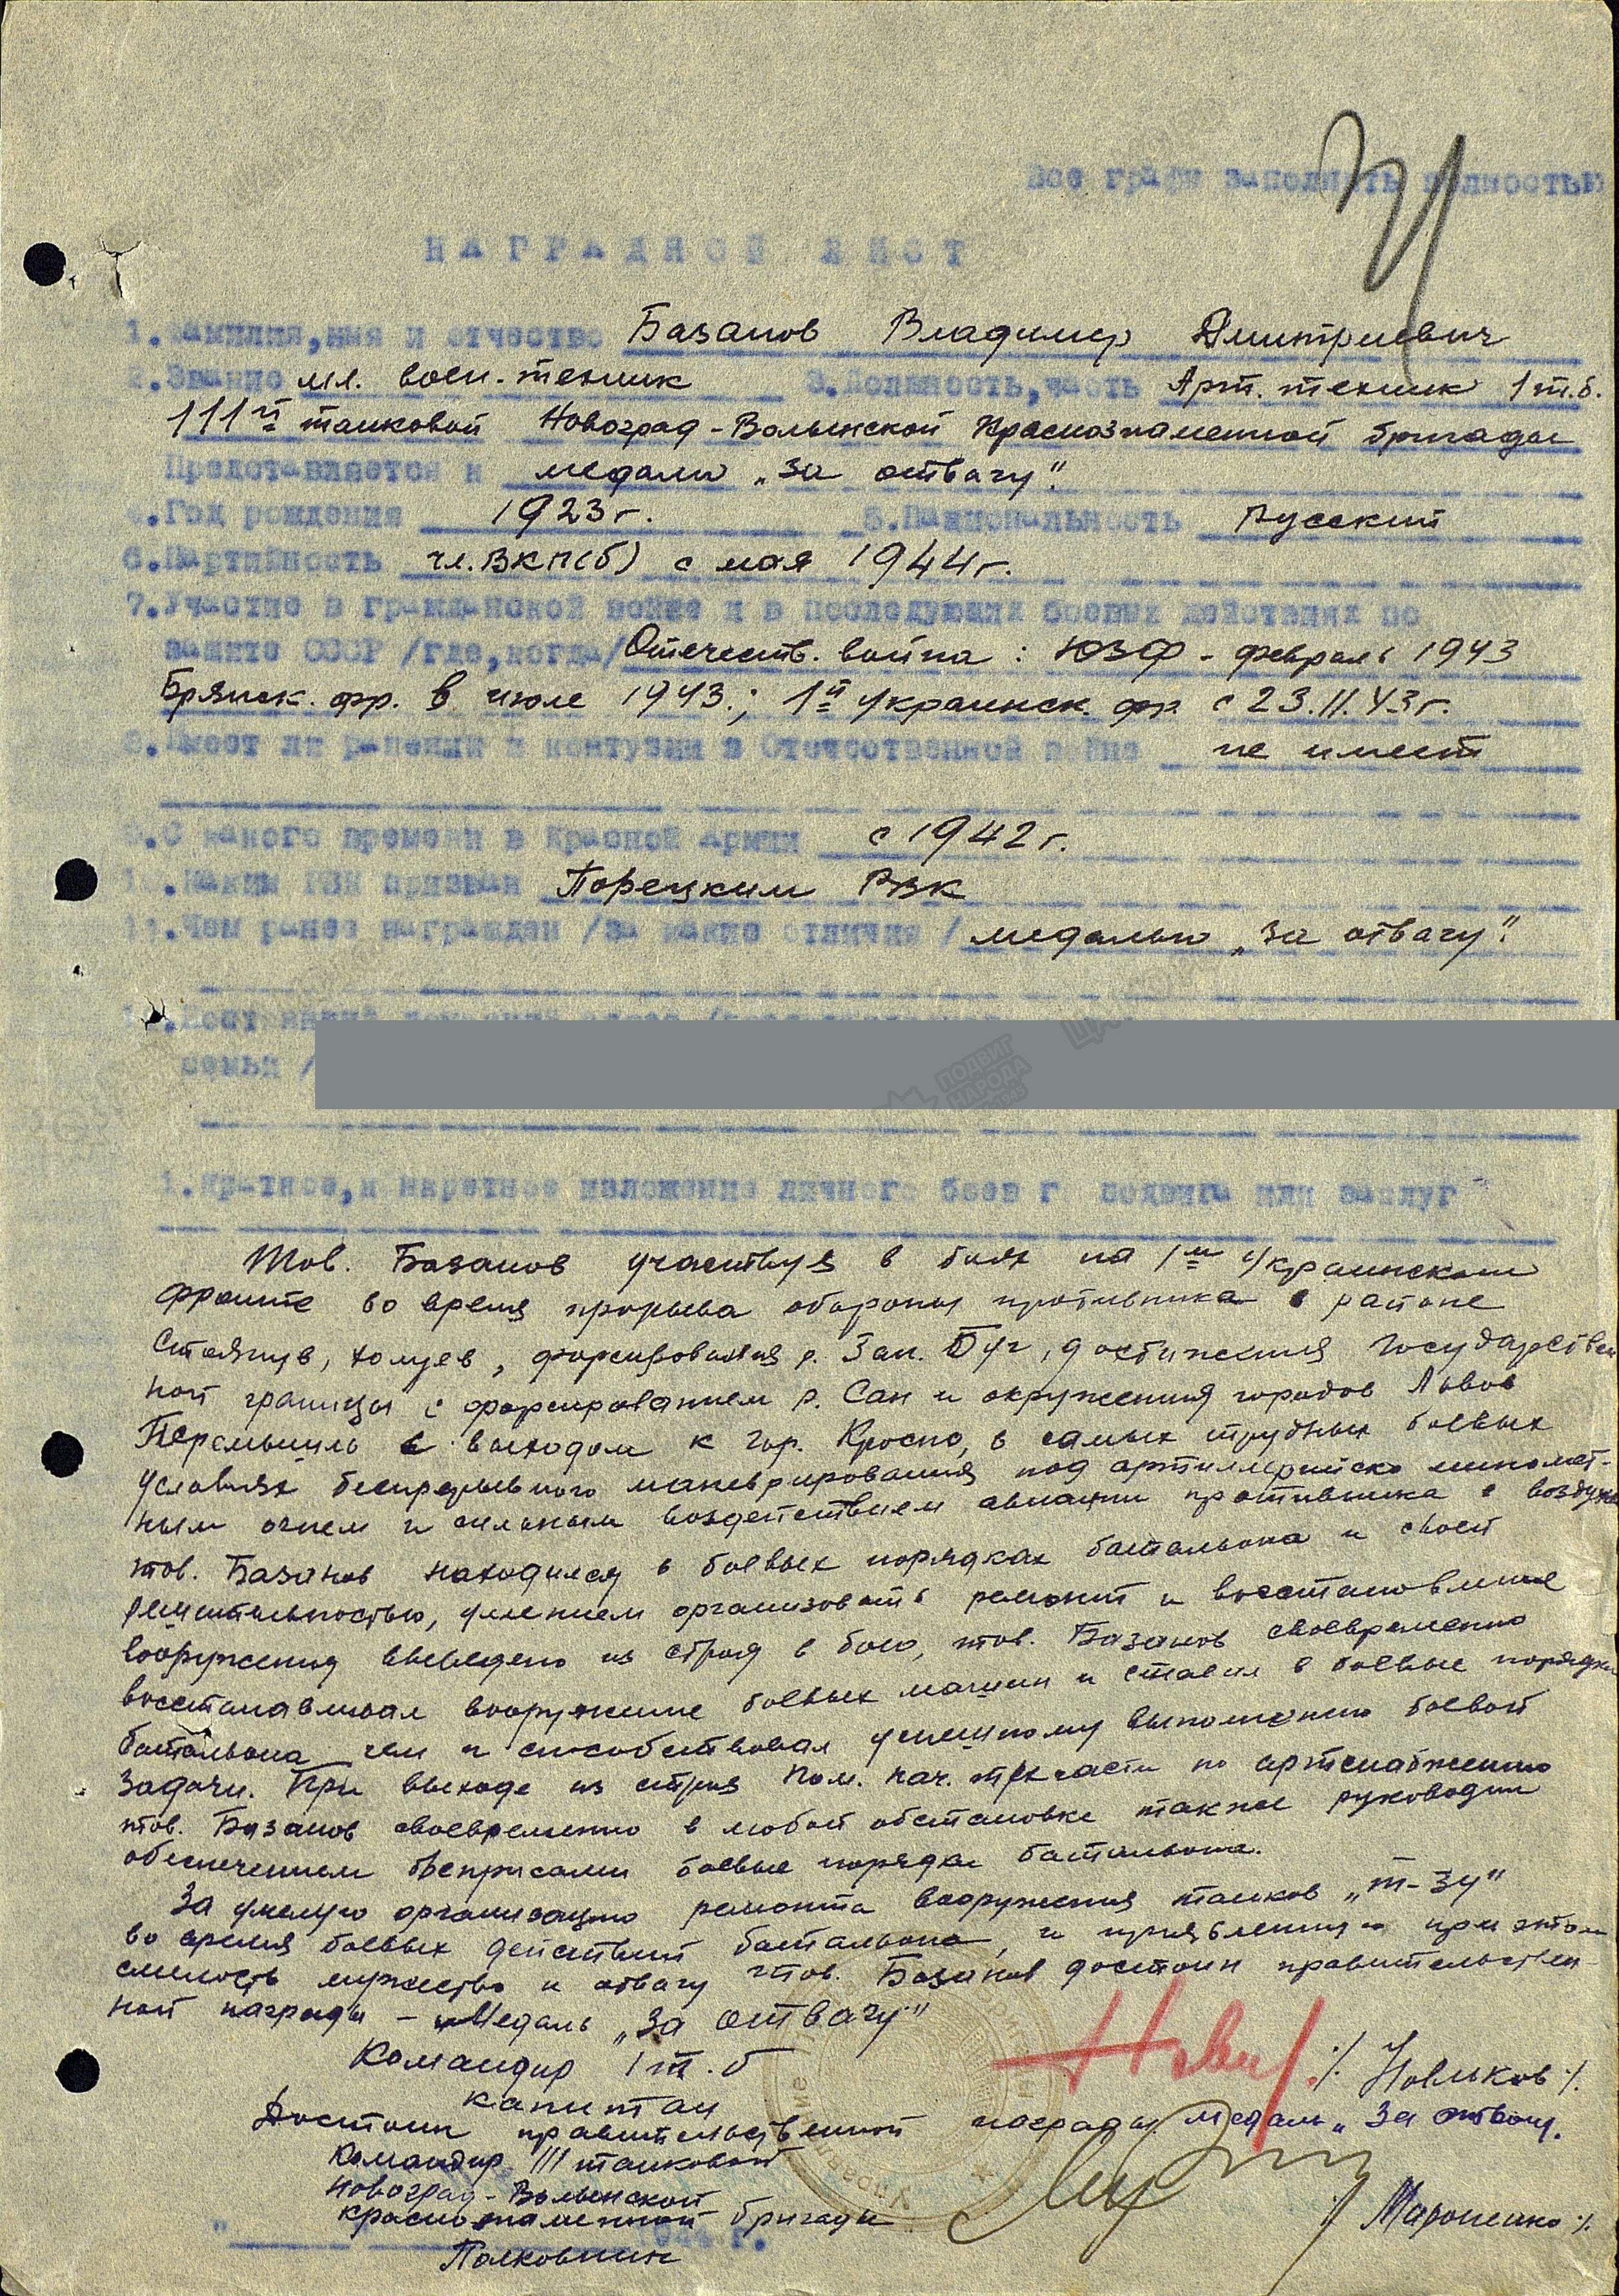 Все графы заполнять полностью
НАГРАДНОЙ ЛИСТ
1. Фамилия, имя и отчество Базанов Владимир Дмитриевич
2. Звание мл. воен. техник 3. Должность, часть Арт. техник 1 т.б.
111й танковой Новоград-Волынской Краснознаменной бригады
Представляется к медали „За отвагу".
4. Год рождения 1923 г. 5. Национальность Русский
6. Партийность чл. ВКП(б) с мая 1944 г.
7. Участие в гражданской войне и в последующих боевых действиях по
защите СССР /где, когда/ Отечеств. война: ЮЗФ - февраль 1943
Брянск. фр. в июле 1943.; 1й Украинск. фр. с 23.11.43 г.
8. Имеет ли ранения и контузии в Отечественной войне не имеет
9. С какого времени в Красной Армии с 1942 г.
10. Каким РВК призван Порецким РВК
11. Чем ранее награжден /за какие отличия/ медалью „За отвагу".
семьи /
ПОДВИГ НАРОДА
1. Краткое, конкретное изложение личного боевого подвига или заслуг
Тов. Базанов участвуя в боях на 1м Украинском
фронте во время прорыва обороны противника в районе
Стоянув, Холуев, форсирования р. Зап. Буг, достижения Государствен
ной границы с форсированием р. Сан и окружения городов Львов
Перемышль с выходом к гор. Кросно, в самых трудных боевых
условиях беспрерывного маневрирования под артиллерийско миномет-
ным огнем и сильным воздействием авиации противника с воздуха
тов. Базанов находился в боевых порядках батальона и своей
решительностью, умением организовать ремонт и восстановление
вооружения выведено из строя в бою, тов. Базанов своевременно
восстанавливал вооружение боевых машин и ставил в боевые порядки
батальона чем и способствовал успешному выполнению боевой
задачи. При выходе из строя Пом. нач. техчасти по артснабжению
тов. Базанов своевременно в любой обстановке также руководил
обеспечением боеприпасами боевые порядки батальона.
За умелую организацию ремонта вооружения танков „Т-34"
во время боевых действий батальона, и проявленную при этом
смелость мужество и отвагу тов. Базанов достоин правительствен-
ной награды - Медаль „За отвагу"
Командир 1 т.б
капитан /Новиков/.
Достоин правительственной награды медаль „За отвагу.
Командир 111 танковой
Новоград-Волынской
краснознаменной бригады
Полковник /Мароненко/.